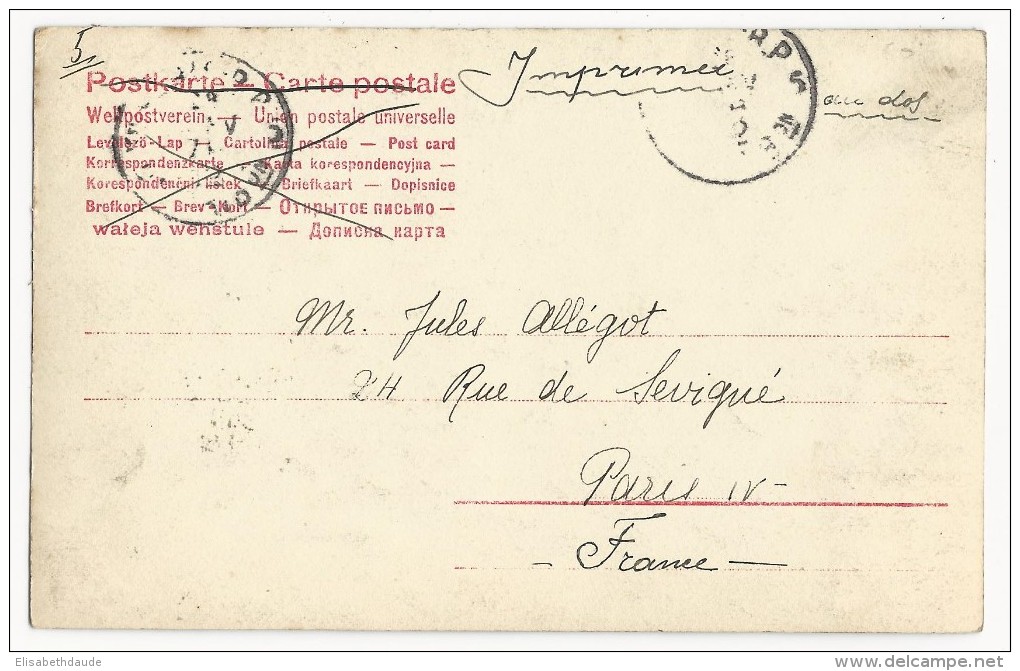 5
Postkarte – Carte postale
Weltpostverein – Union postale universelle
Levelező-Lap – Cartolina postale – Post card
Korrespondenzkarte – Karta korespondencyjna –
Korespondenční lístek – Briefkaart – Dopisnice
Brefkort – Brev-Kort – Открытое письмо –
wałeja wehstule – Дописна карта
Imprimée
au dos
Mr. Jules Allégot
24 Rue de Sevigné
Paris IV-
- France -
Elisabethdaude
delcampe.net